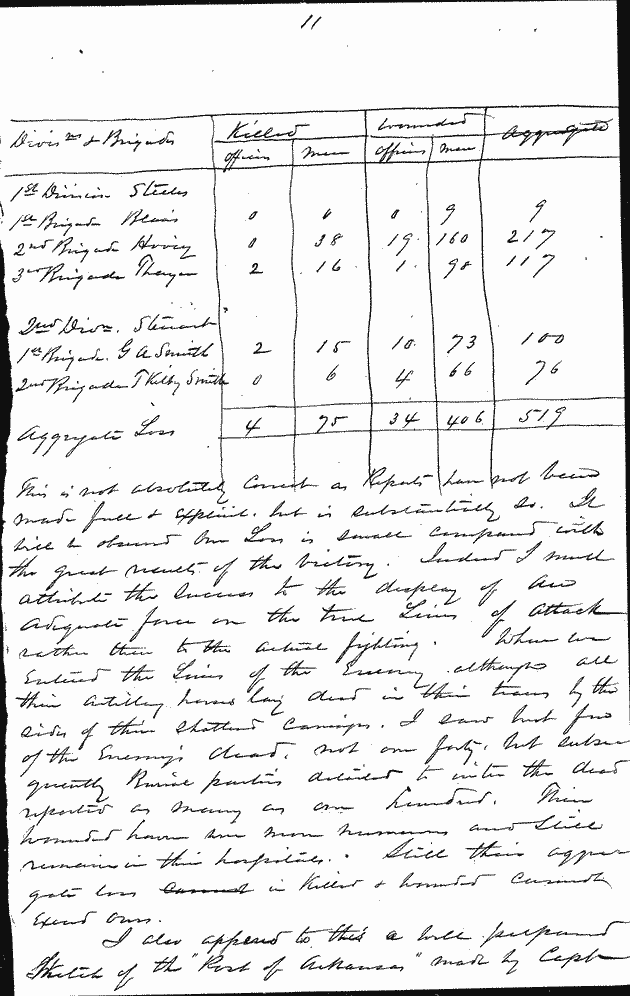 11
Divis ns & Brigade Killed Wounded Aggregate
officers men officers men
1st Division Steeles
1st Brigade Blairs 0 0 0 9 9
2nd Brigade Hovey 0 38 19 160 217
3rd Brigade Thayer 2 16 1 98 117
2nd Divn. Stewart
1st Brigade. G A Smith 2 15 10 73 100
2nd Brigade T Kilby Smith 0 6 4 66 76
Aggregate Loss 4 75 34 406 519
This is not absolutely correct as Reports have not been
made full & explicit, but is substantially so. It
will be observed our Loss is small compared with
the great results of the victory. Indeed I must
attribute the success to the display of an
adequate force on the true Lines of attack
rather than to the actual fighting. When we
Entered the Lines of the Enemy although all
their artillery horses lay dead in their traces by the
sides of their shattered carriages. I saw but few
of the Enemy's dead, not over forty, but subse
quently Burial parties detailed to inter the dead
reported as many as one hundred. Their
wounded have been more numerous and still
remain in their hospitals. Still their aggre
gate loss cannot in Killed & wounded cannot
Exceed ours.
I also append to this a well prepared
Sketch of the "Post of Arkansas" made by Captn